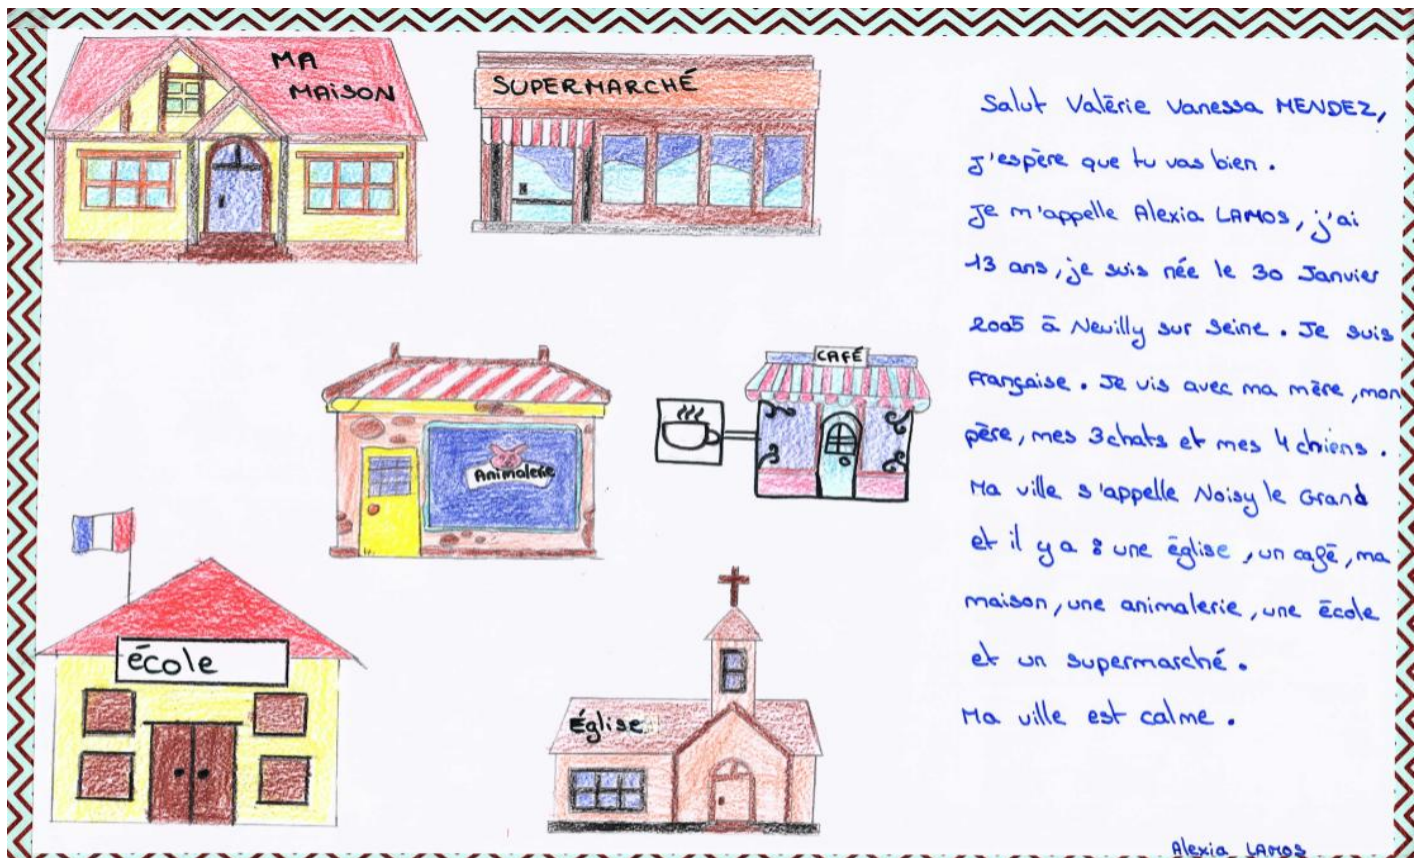 MA
MAISON
SUPERMARCHÉ
CAFÉ
Animalerie
école
Église
Salut Valérie Vanessa MENDEZ,
j'espère que tu vas bien.
Je m'appelle Alexia LAMOS, j'ai
13 ans, je suis née le 30 Janvier
2005 à Neuilly sur Seine. Je suis
Française. Je vis avec ma mère, mon
père, mes 3 chats et mes 4 chiens.
Ma ville s'appelle Noisy le Grand
et il y a : une église, un café, ma
maison, une animalerie, une école
et un supermarché.
Ma ville est calme.
Alexia LAMOS